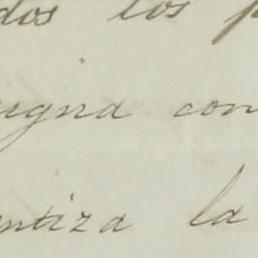 dos los p
egna con
ntiza la